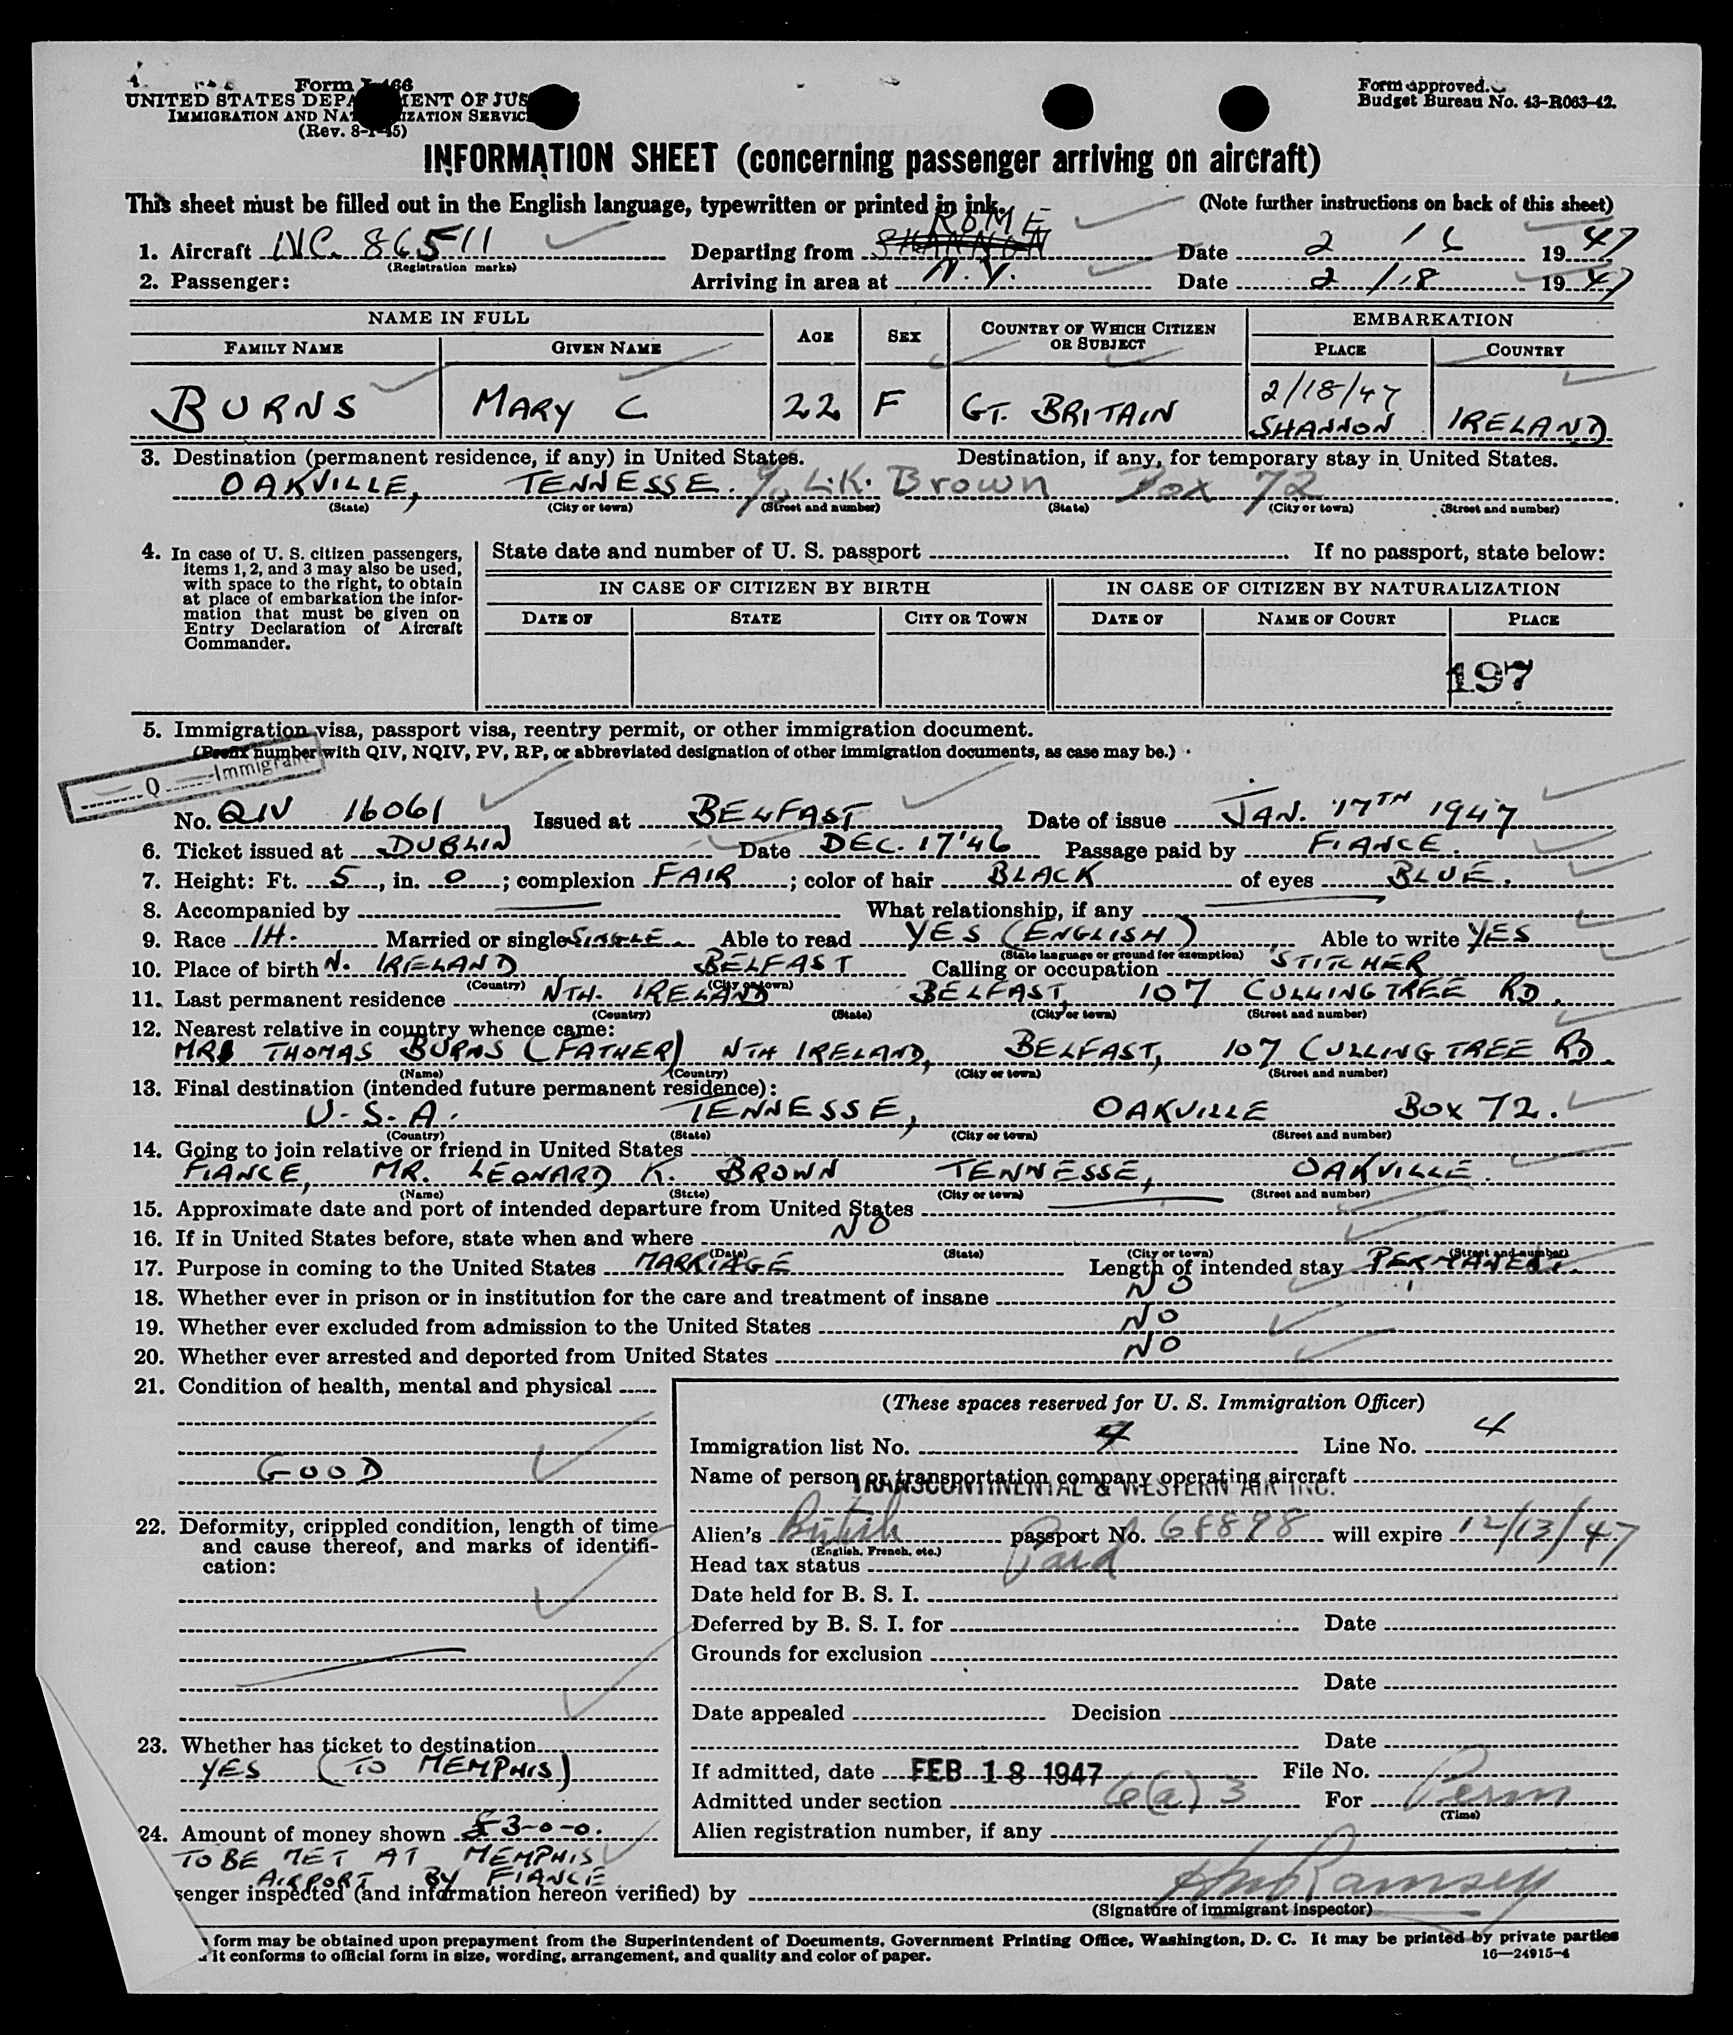 Form I-466
UNITED STATES DEPARTMENT OF JUSTICE
IMMIGRATION AND NATURALIZATION SERVICE
(Rev. 8-1-45)
Form approved.
Budget Bureau No. 43-R063-42.
INFORMATION SHEET (concerning passenger arriving on aircraft)
This sheet must be filled out in the English language, typewritten or printed in ink. (Note further instructions on back of this sheet)
ROME
1. Aircraft NC. 86511 Departing from SHANNON Date 2 / 6 1947
(Registration marks)
2. Passenger: Arriving in area at N.Y. Date 2 / 18 1947
NAME IN FULL AGE SEX COUNTRY OF WHICH CITIZEN OR SUBJECT EMBARKATION
FAMILY NAME GIVEN NAME PLACE COUNTRY
2/18/47
BURNS MARY C 22 F GT. BRITAIN SHANNON IRELAND
3. Destination (permanent residence, if any) in United States. Destination, if any, for temporary stay in United States.
OAKVILLE, TENNESSE. c/o L.K. Brown Box 72
(State) (City or town) (Street and number) (State) (City or town) (Street and number)
4. In case of U. S. citizen passengers, State date and number of U. S. passport If no passport, state below:
items 1, 2, and 3 may also be used,
with space to the right, to obtain
at place of embarkation the infor-
mation that must be given on
Entry Declaration of Aircraft
Commander.
IN CASE OF CITIZEN BY BIRTH IN CASE OF CITIZEN BY NATURALIZATION
DATE OF STATE CITY OR TOWN DATE OF NAME OF COURT PLACE
197
5. Immigration visa, passport visa, reentry permit, or other immigration document.
(Prefix number with QIV, NQIV, PV, RP, or abbreviated designation of other immigration documents, as case may be.)
Q Immigrant
No. QIV 16061 Issued at BELFAST Date of issue JAN. 17TH 1947
6. Ticket issued at DUBLIN Date DEC. 17'46 Passage paid by FIANCE.
7. Height: Ft. 5, in. 0; complexion FAIR; color of hair BLACK of eyes BLUE.
8. Accompanied by What relationship, if any
9. Race IH. Married or single SINGLE Able to read YES (ENGLISH) Able to write YES
(State language or ground for exemption)
10. Place of birth N. IRELAND BELFAST Calling or occupation STITCHER
(Country) (City or town)
11. Last permanent residence NTH. IRELAND BELFAST, 107 CULLINGTREE RD.
(Country) (State) (City or town) (Street and number)
12. Nearest relative in country whence came:
MR THOMAS BURNS (FATHER) NTH IRELAND, BELFAST, 107 CULLINGTREE RD
(Name) (Country) (City or town) (Street and number)
13. Final destination (intended future permanent residence):
U.S.A. TENNESSE, OAKVILLE BOX 72.
(Country) (State) (City or town) (Street and number)
14. Going to join relative or friend in United States
FIANCE, MR. LEONARD K. BROWN TENNESSE, OAKVILLE.
(Name) (State) (City or town) (Street and number)
15. Approximate date and port of intended departure from United States
16. If in United States before, state when and where NO
(Date) (State) (City or town) (Street and number)
17. Purpose in coming to the United States MARRIAGE Length of intended stay PERMANENT.
18. Whether ever in prison or in institution for the care and treatment of insane NO
19. Whether ever excluded from admission to the United States NO
20. Whether ever arrested and deported from United States NO
21. Condition of health, mental and physical
GOOD
22. Deformity, crippled condition, length of time
and cause thereof, and marks of identifi-
cation:
23. Whether has ticket to destination
YES (TO MEMPHIS)
24. Amount of money shown £3-0-0.
TO BE MET AT MEMPHIS
AIRPORT BY FIANCE
(These spaces reserved for U. S. Immigration Officer)
Immigration list No. 4 Line No. 4
Name of person or transportation company operating aircraft
TRANSCONTINENTAL & WESTERN AIR INC.
Alien's British passport No. 68898 will expire 12/13/47
(English, French, etc.)
Head tax status Paid
Date held for B. S. I.
Deferred by B. S. I. for Date
Grounds for exclusion
Date
Date appealed Decision
Date
If admitted, date FEB 18 1947 File No.
Admitted under section 6(a) 3 For Perm
(Time)
Alien registration number, if any
senger inspected (and information hereon verified) by Ramsey
(Signature of immigrant inspector)
form may be obtained upon prepayment from the Superintendent of Documents, Government Printing Office, Washington, D. C. It may be printed by private parties
it conforms to official form in size, wording, arrangement, and quality and color of paper. 16—24915-4